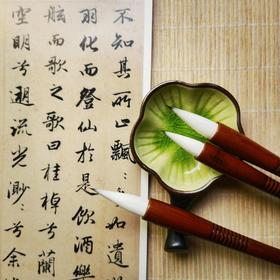 不知其所止飄〻如遺
羽化而登仙於是飲酒樂
舷而歌之歌曰桂棹兮蘭
空明兮遡流光渺〻兮余